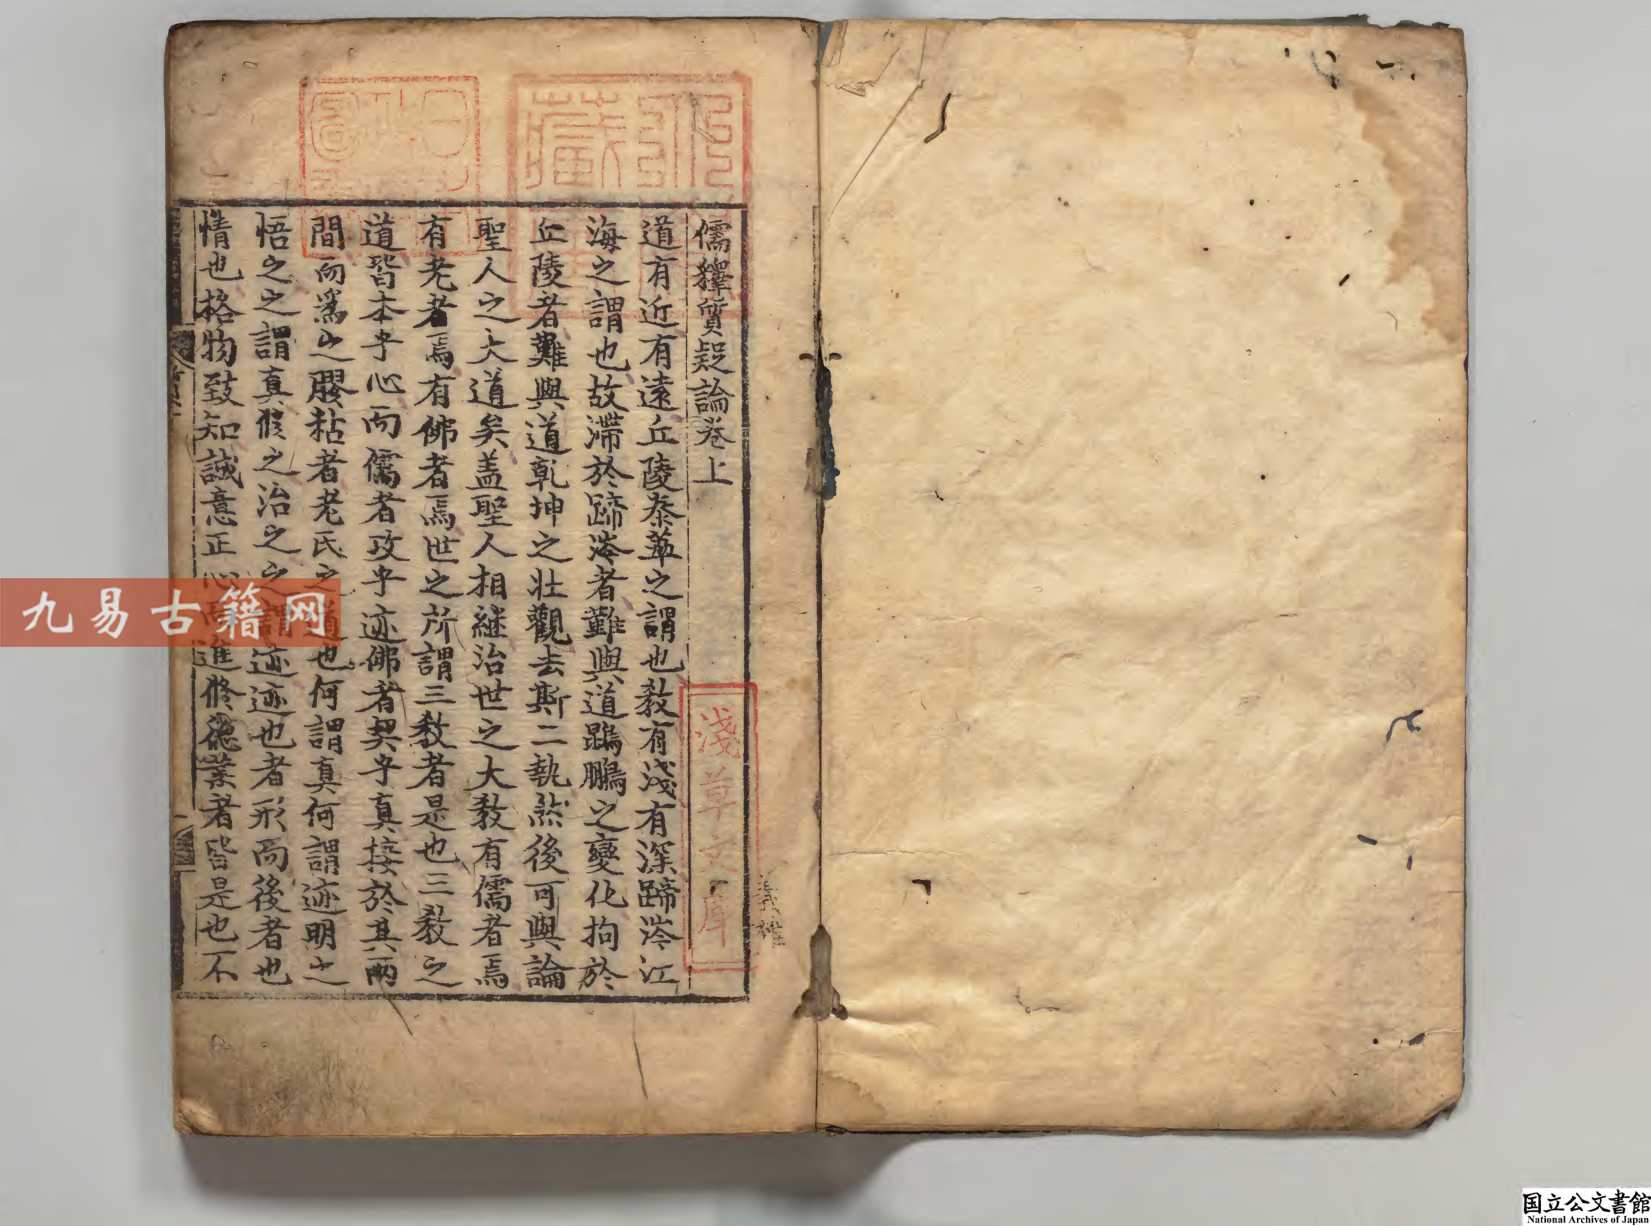 儒釋質疑論卷上
道有近有遠丘陵泰華之謂也敎有淺有深蹄涔江
海之謂也故滯於蹄涔者難與道鵾鵬之變化拘於
丘陵者難與道乾坤之壯觀去斯二執然後可與論
聖人之大道矣盖聖人相継治世之大敎有儒者焉
有老者焉有佛者焉世之所謂三敎者是也三敎之
道皆本乎心而儒者攻乎迹佛者契乎真接於其兩
間而爲之膠粘者老氏之道也何謂真何謂迹明之
悟之之謂真修之治之之謂迹迹也者形而後者也
情也格物致知誠意正心而進修德業者皆是也不
淺草文庫
九易古籍网
国立公文書館
National Archives of Japan